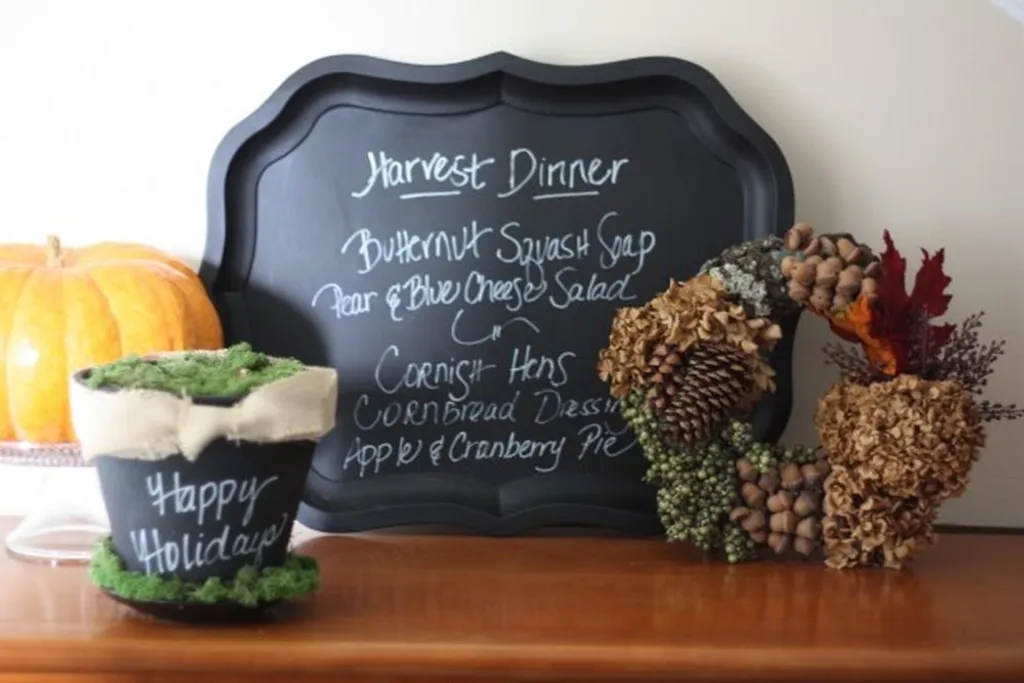 Harvest Dinner
Butternut Squash Soap
Pear & Blue Cheese Salad
Cornish Hens
Cornbread Dressin
Apple & Cranberry Pie
Happy
Holidays